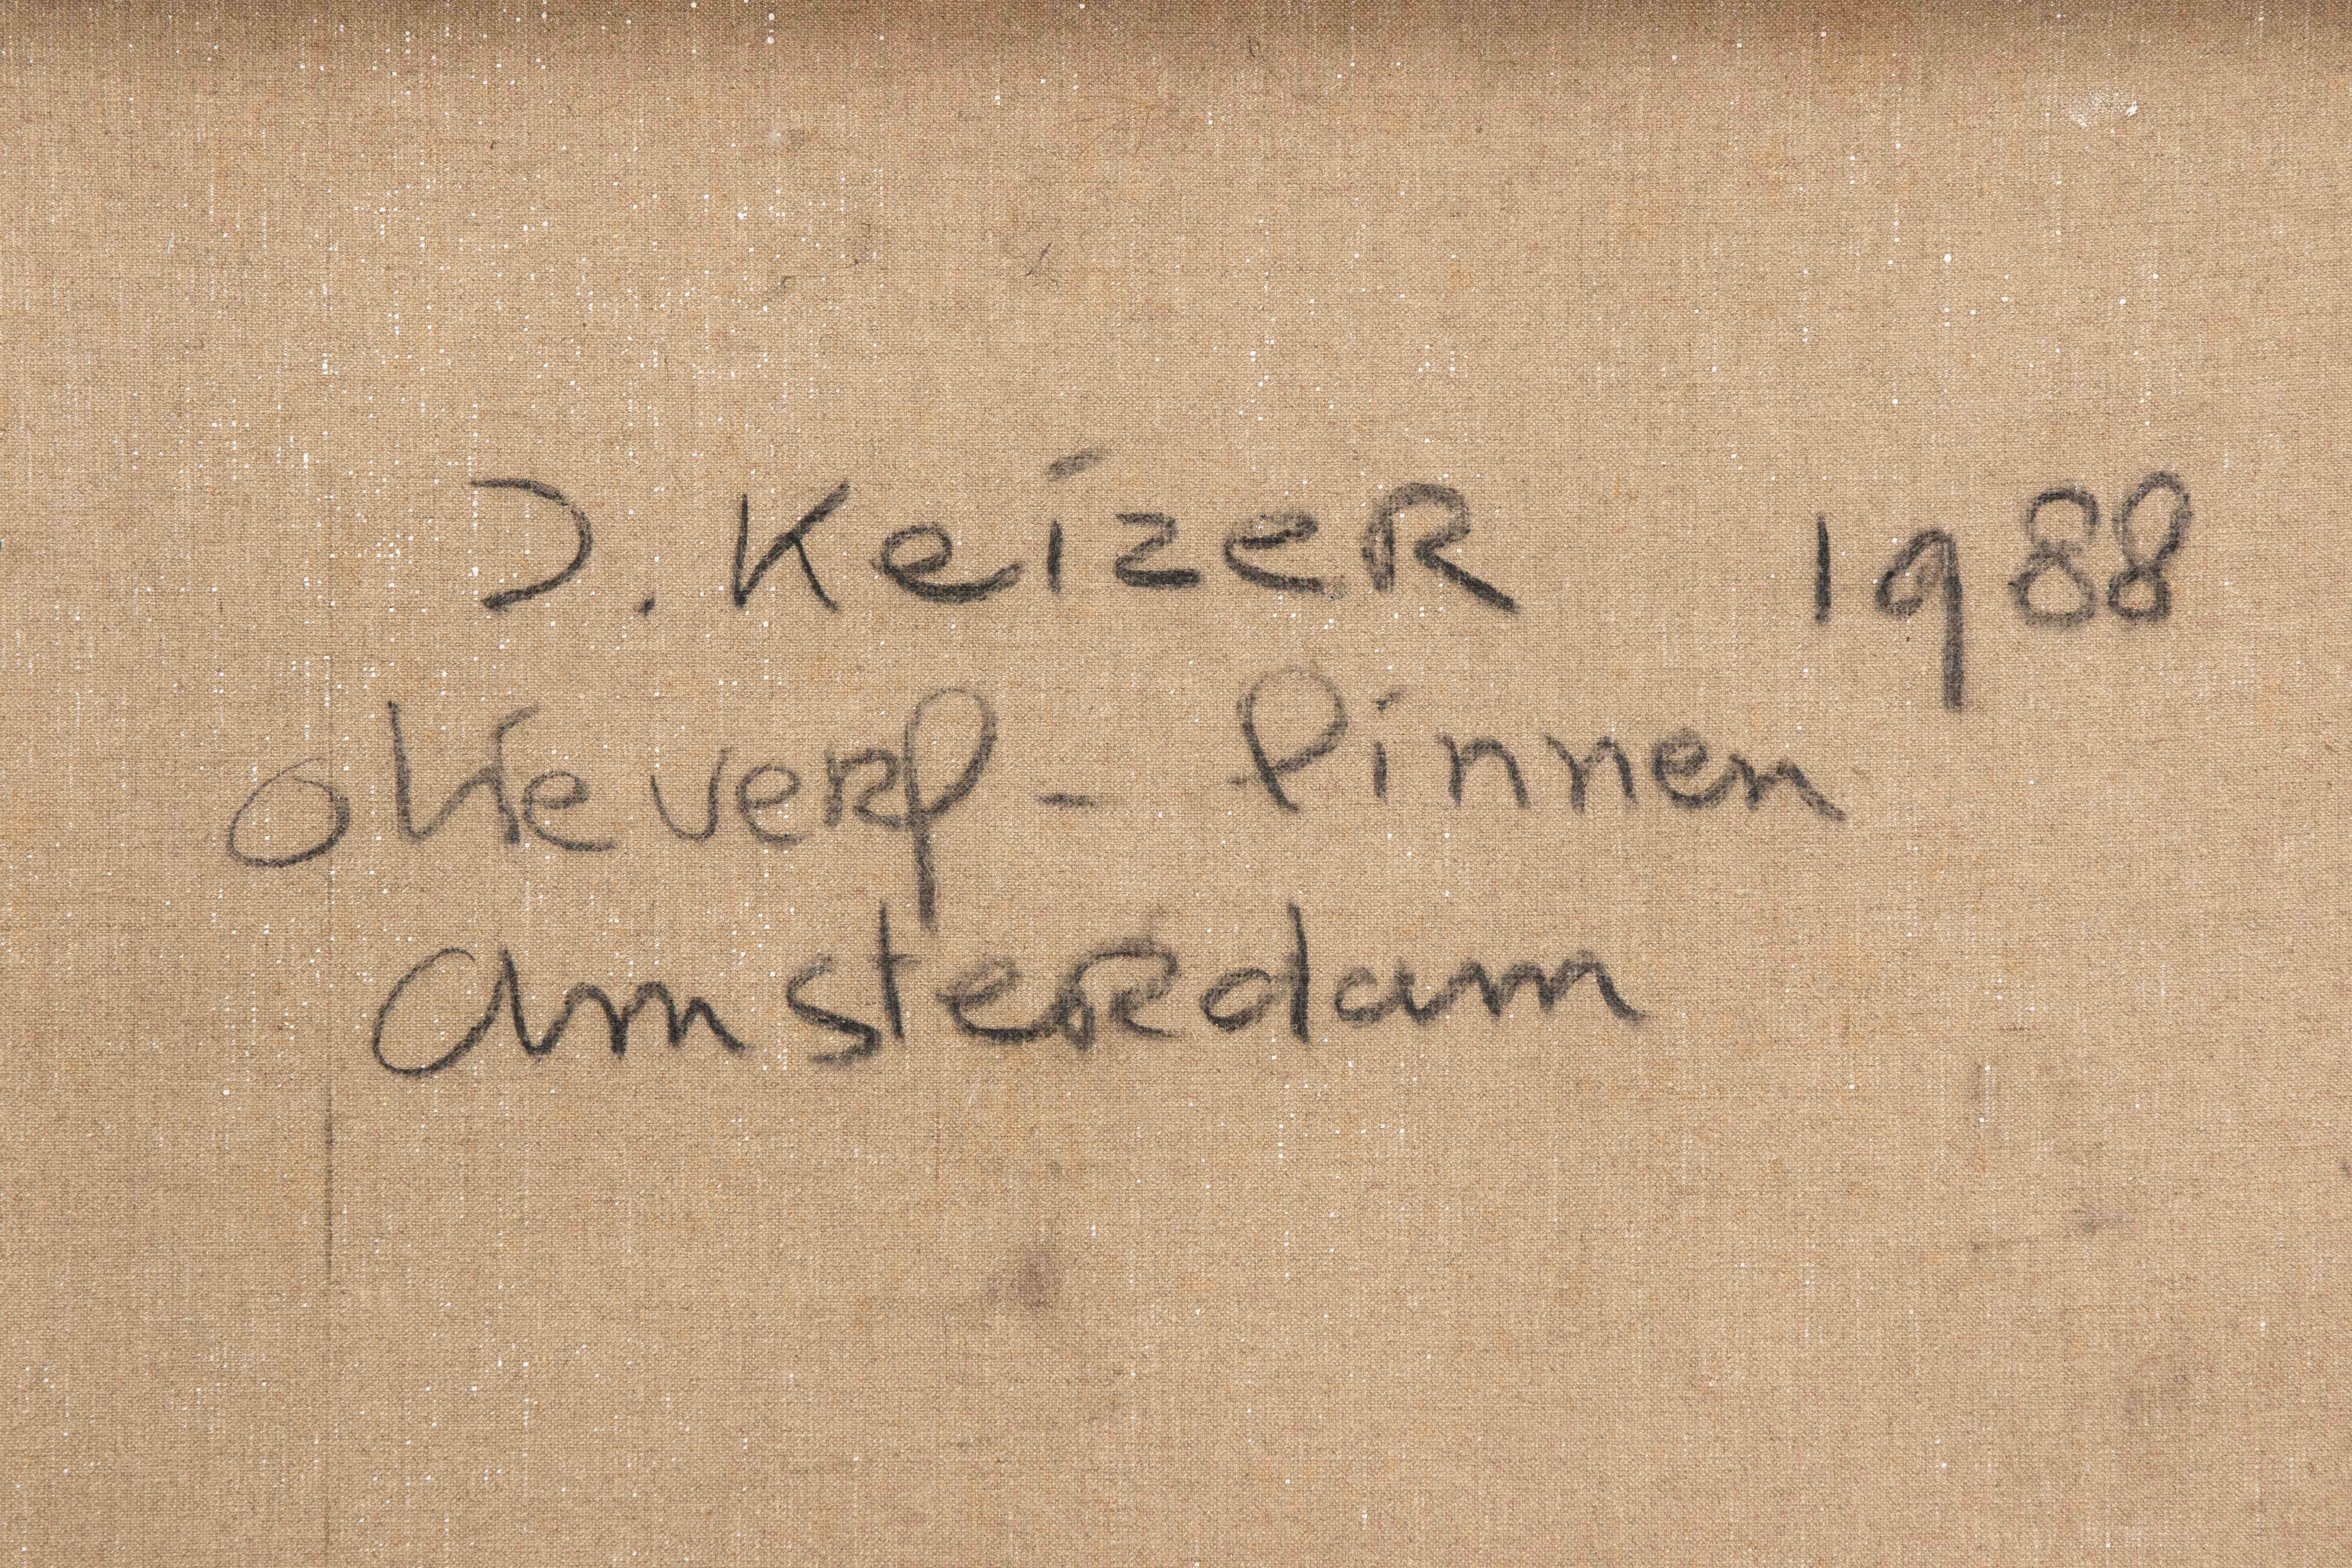 J. Keizer 1988
olieverf - linnen
amsterdam